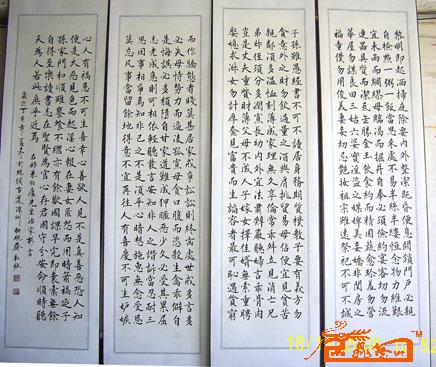 黎明即起洒掃庭除要內外整潔既昏便息關鎖門戶必親
自檢點一粥一飯當思來處不易半絲半縷恒念物力維艱
宜未雨而綢繆毋臨渴而掘井自奉必須儉約宴客切勿流
連器具質而潔瓦缶勝金玉飲食約而精園蔬愈珍羞勿營
華屋勿謀良田三姑六婆實淫盜之媒婢美妾嬌非閨房之
福童僕勿用俊美妻妾切忌艷妝祖宗雖遠祭祀不可不誠
子孫雖愚經書不可不讀居身務期質樸教子要有義方勿
貪意外之財勿飲過量之酒與肩挑貿易毋佔便宜見貧苦
親鄰須多溫恤刻薄成家理無久享倫常乖舛立見消亡兄
弟叔侄須分多潤寡長幼內外宜法肅辭嚴聽婦言乖骨肉
豈是丈夫重資財薄父母不成人子嫁女擇佳婿無索重聘
娶媳求淑女勿計厚奩見富貴而生諂容者最可恥遇貧窮
而作驕態者賤莫甚居家戒爭訟訟則終凶處世戒多言言多
必失毋恃勢力而凌逼孤寡毋貪口腹而恣殺生禽乖僻自
是悔誤必多頹隳自甘家道難成狎暱惡少久必受其累屈
志老成急則可相依輕聽發言安知非人之譖訴當忍耐三
思因事相爭焉知非我之不是須平心暗想施惠無念受恩
莫忘凡事當留餘地得意不宜再往人有喜慶不可生妒嫉
心人有禍患不可生喜幸心善欲人見不是真善惡恐人知
便是大惡見色而起淫心報在妻女匿怨而用暗箭禍延子
孫家門和順雖饔飧不繼亦有餘歡國課早完即囊橐無餘
自得至樂讀書志在聖賢為官心存君國守分安命順時聽
天為人若此庶乎近焉
右錄朱柏廬先生治家格言